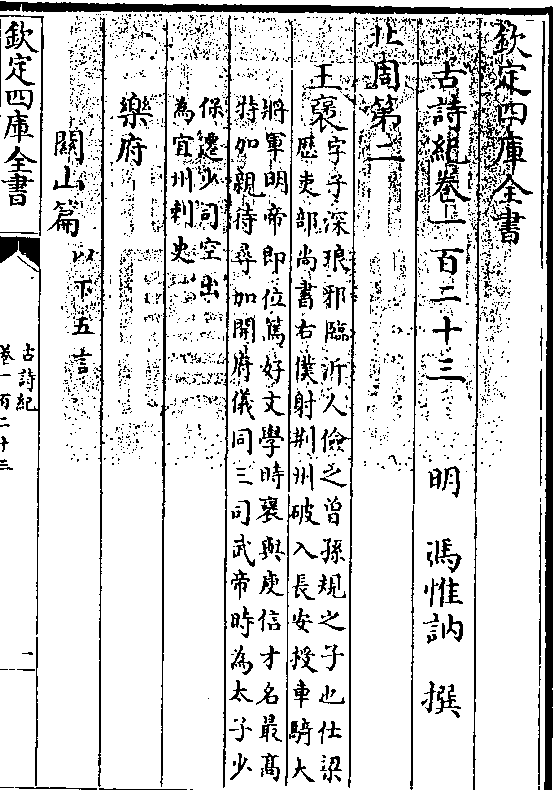 欽定四庫全書
古詩紀卷一百二十三　明　馮惟訥　撰
北周第二
王襃字子深琅邪臨沂人儉之曾孫規之子也仕梁
歷吏部尚書右僕射荆州破入長安授車騎大
將軍明帝即位篤好文學時襃與庾信才名最高
特加親待尋加開府儀同三司武帝時為太子少
保遷少司空出
為宜州刺史
樂府
關山篇以下五言
欽定四庫全書
古詩紀
卷一百二十三
一